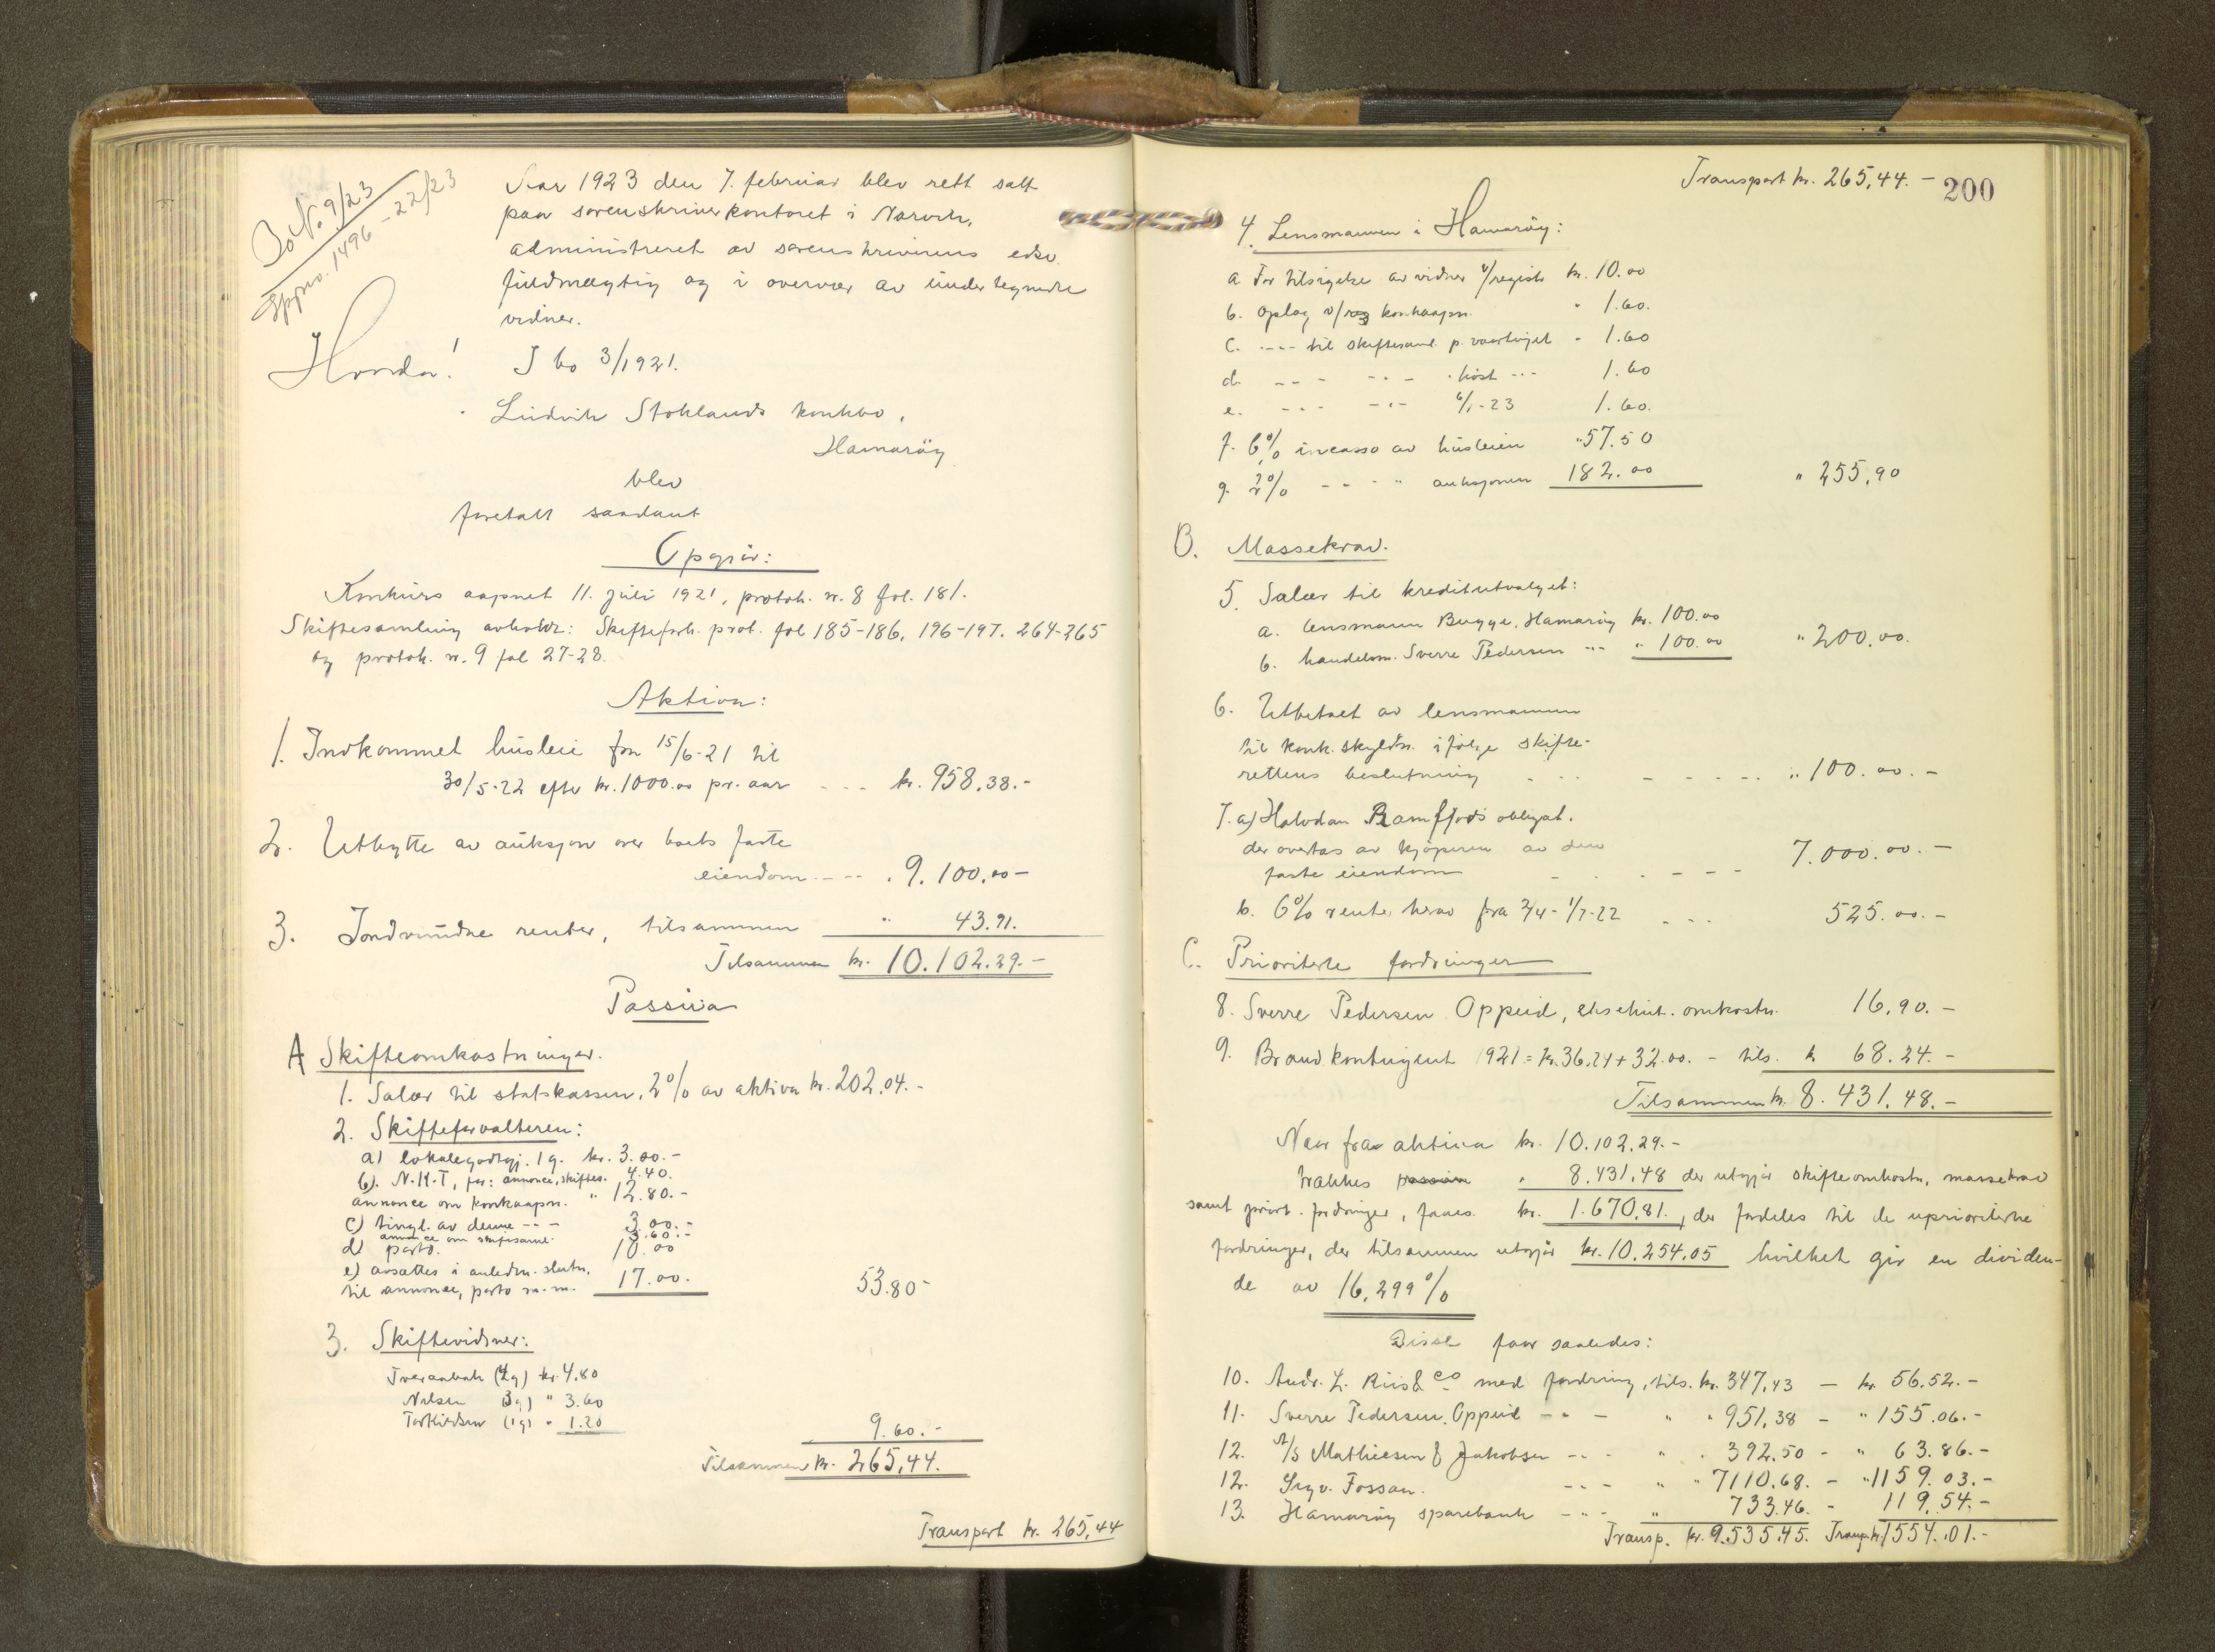 Jo.N. 9/23
Jppno. 1496-22/23
Aar 1923 den 7. februar blev rett satt
paa sorenskriverkontoret i Narvik,
administreret av sorenskriverens edsv.
fuldmægtig og i overvær av undertegnede
vidner.
I bo 3/1921.
Ludvik Stoklands konkbo,
Hamarøy
blev
foretatt saadant
Opgjör:
Konkurs aapnet 11. juli 1921, protok. nr. 8 fol. 181.
Skiftesamling avholdt: Skifteforh. prot. fol 185-186, 196-197. 264-265
og protok. nr. 9 fol 27-28.
Aktiva:
1. Indkommet husleie fra 15/6-21 til
30/5-22 efter kr. 1000.00 pr. aar - - - kr. 958.38.-
2. Utbytte av auksjon over boets faste
eiendom - - - „ 9.100.00-
3. Indvundne renter, tilsammen " 43.91.
Tilsammen kr. 10.102.29.-
Passiva
A Skifteomkostninger.
1. Salær til statskassen, 2% av aktiva kr. 202.04.-
2. Skifteforvalteren:
a) lokalegodtgj. 1 g. kr. 3.00.-
b). N.K.T, for: annonce, skiftes. 4.40.
annonce om konkaapn. " 12.80.-
c) tingl. av denne - - - 3.00.-
annonce om skiftesaml. 3.60.-
d) porto. 10.00
e) avsættes i anledn. slutn.
til annonce, porto m.m. 17.00. 53.80-
3. Skiftevidner:
Tveraabak (4g) kr. 4.80
Nilsen (3g) " 3.60
Torkildsen (1g) " 1.20
9.60.-
Tilsammen kr. 265,44.
Transport kr. 265,44
Transport kr. 265,44.-
200
4. Lensmannen i Hamarøy:
a For tilsigelse av vidner v/registr kr. 10.00
b. oplag v/reg konkaapn. " 1.60.
c. - - - til skiftesaml. p. vaartinget " 1.60
d. - - - - - - høst - - - 1.60
e. - - - - - - 6/1-23 1.60.
f. 6% incasso av husleien " 57.50
g. 2% - - - " auksjonen 182.00 " 255,90
B. Massekrav.
5. Salær til kreditutvalget:
a. lensmann Bugge, Hamarøy kr. 100.00
b. handelsm. Sverre Pedersen - - - " 100.00 " 200.00.
6. Utbetalt av lensmannen
til konk. skyldn. ifølge skifte-
rettens beslutning - - - - - - - " 100.00.-
7. a) Halvdan Ramfjords obligat.
der overtas av kjøperen av den
faste eiendom - - - - - - 7.000.00.-
b. 6% rente herav fra 2/4-1/7-22 - - - 525.00.-
C. Prioriterte fordringer
8. Sverre Pedersen Oppeid, eksekut. omkostn. 16,90.-
9. Brandkontingent 1921 = kr. 36.24 + 32.00. - tils. kr 68.24.-
Tilsammen kr. 8.431.48.-
Naar fra aktiva kr. 10.102.29.-
trækkes passiva " 8.431.48 der utgjör skifteomkostn, massekrav
samt priort. fordringer, faaes kr. 1.670,81., der fordeles til de uprioriterte
fordringer, der tilsammen utgjör kr. 10.254.05 hvilket gir en dividen-
de av 16,299%
Disse faar saaledes:
10. Andr. L. Riis & Co med fordring, tils. kr. 347,43 - kr. 56.52.-
11. Sverre Pedersen, Oppeid - - - " " 951,38 - " 155.06.-
12. A/S Mathiesen & Jakobsen - - - " " 392.50 - " 63.86.-
12. Sigv. Fossan. - - - " " 7110.68. - " 1159.03.-
13. Hamarøy sparebank - - - " 733.46. - 119.54.-
Transp. kr. 9.535.45. Transp. kr. 1554.01.-